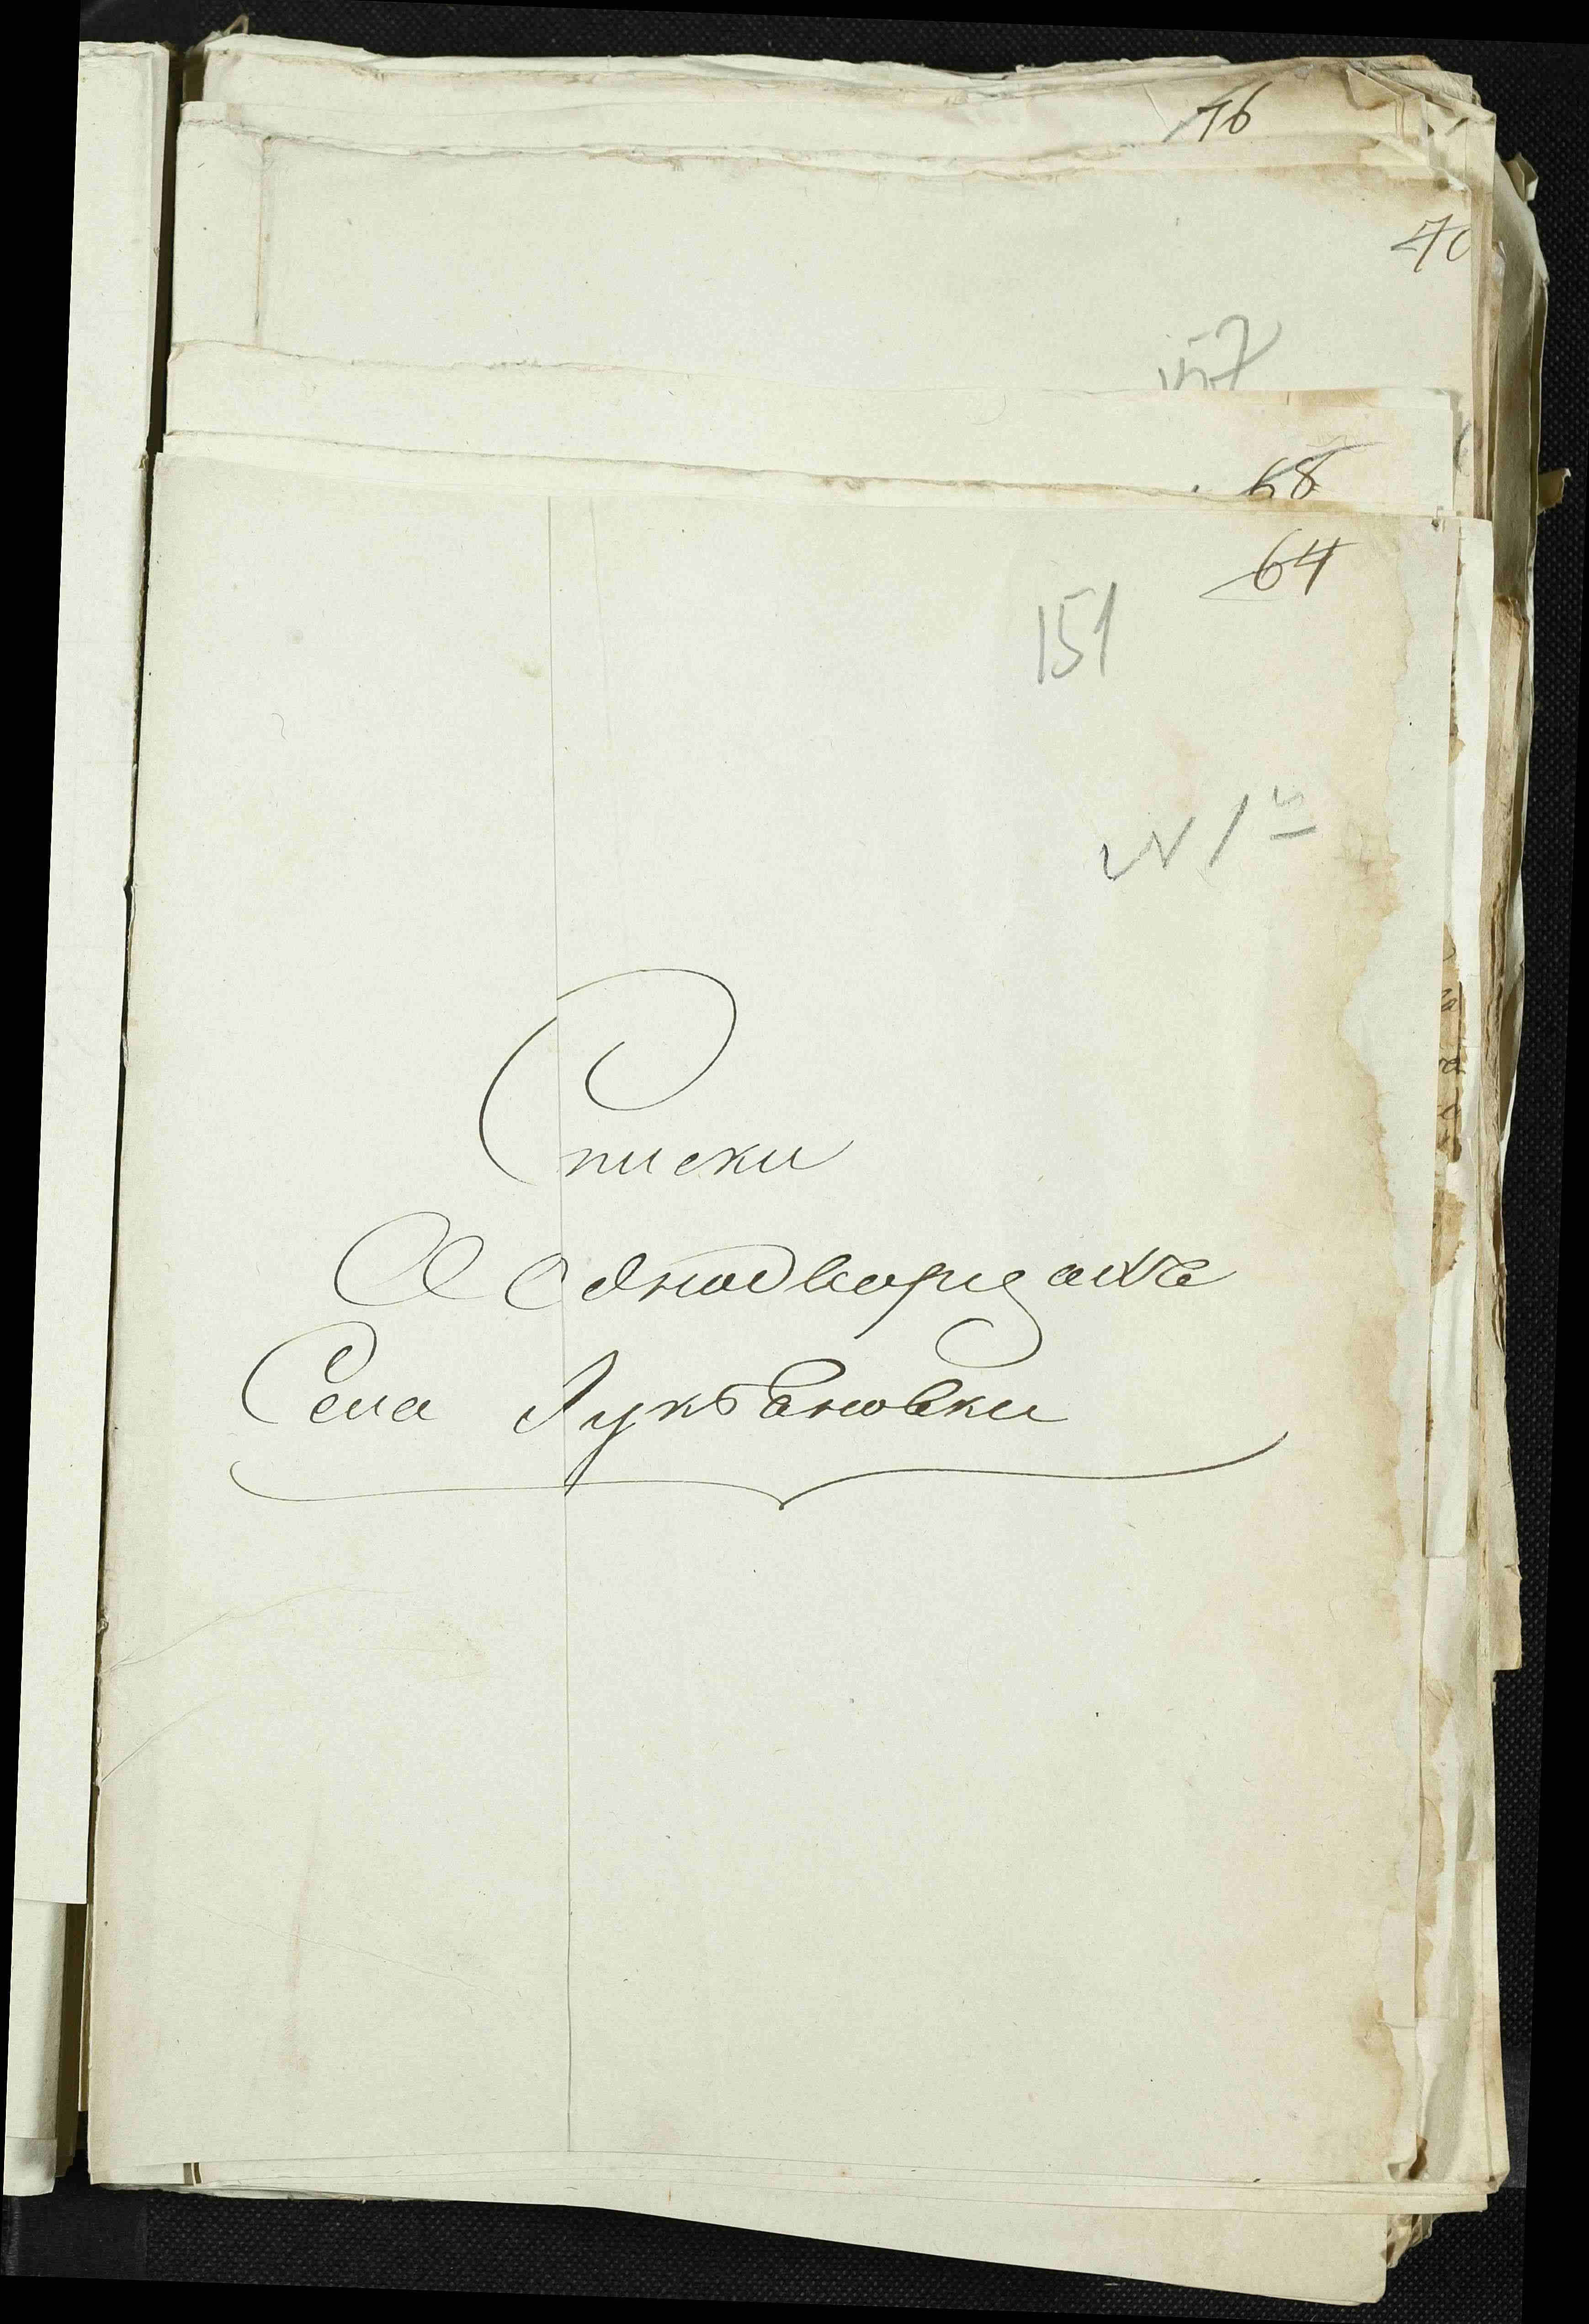 76
70
157
68
64
151
N 1й
Списки
О Однодворцахъ
Села Лукьяновки